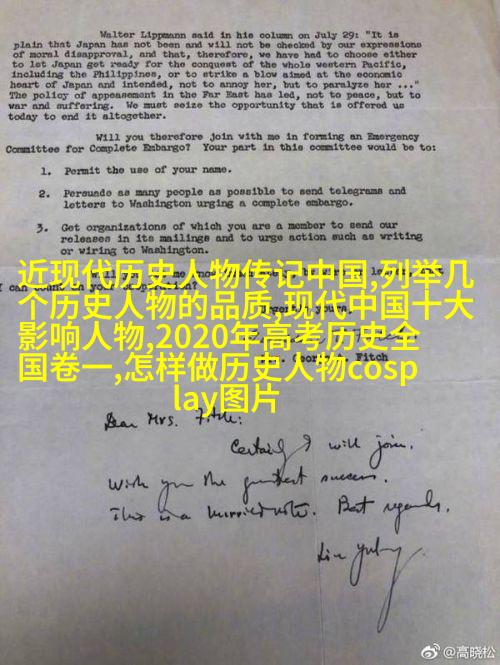 Walter Lippmann, and said in his column on July 29: "It is
plain that Japan has not been and will not be checked by our expressions
of moral disapproval, and that, therefore, we have had to choose either
to let Japan get ready for the conquest of the whole western Pacific,
including the Philippines, or to strike a blow aimed at the economic
heart of Japan and intended, not to annoy her, but to paralyze her ..."
The policy of appeasement in the Far East has led, not to peace, but to
war and suffering. We must seize the opportunity that is offered us
today to end it altogether.
Will you therefore join with me in forming an Emergency
Committee for Complete Embargo? Your part in this committee would be to:
1. Permit the use of your name.
2. Persuade as many people as possible to send telegrams and
letters to Washington urging a complete embargo.
3. Get organizations of which you are a member to send our
releases in its mailings and to urge action such as writing
or wiring to Washington.
近现代历史人物传记中国,列举几
个历史人物的品质,现代中国十大
影响人物,2020年高考历史全
国卷一,怎样做历史人物cosp
lay图片
Fitch
Dear Mrs. Fitch:
Certainly I will join.
Wish you the greatest success.
This is a hurried note. Best regards.
Lin Yutang
@高晓松